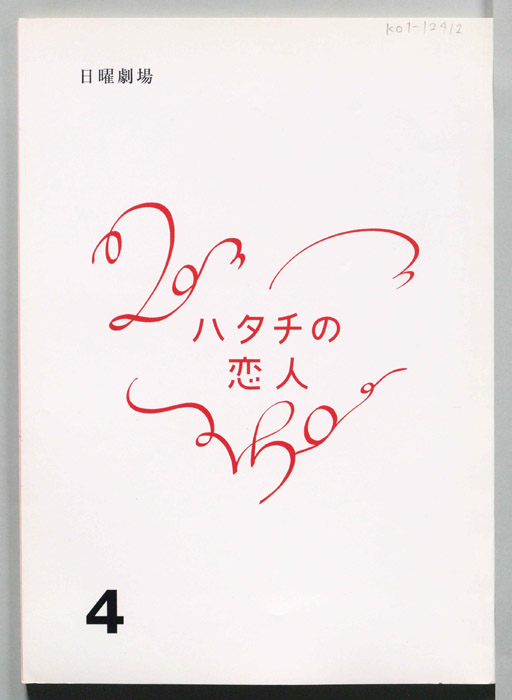 KOT-12412
日曜劇場
ハタチの
恋人
4